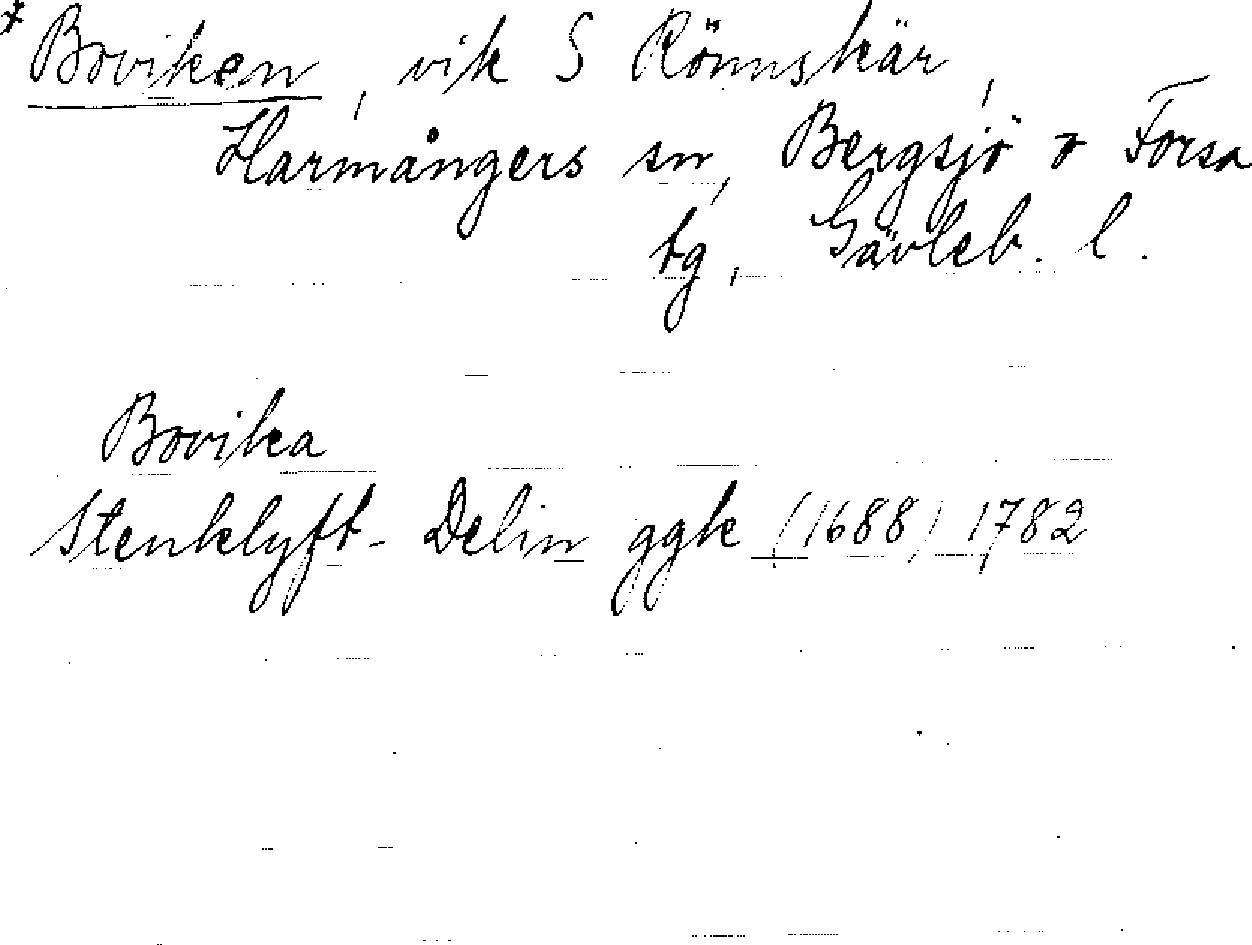 * Boviken, vik S Rönnskär,
Harmångers sn, Bergsjö o Forsa
tg, Gävleb. l.
Bovika
Stenklyft- Delin ggk (1688) 1782